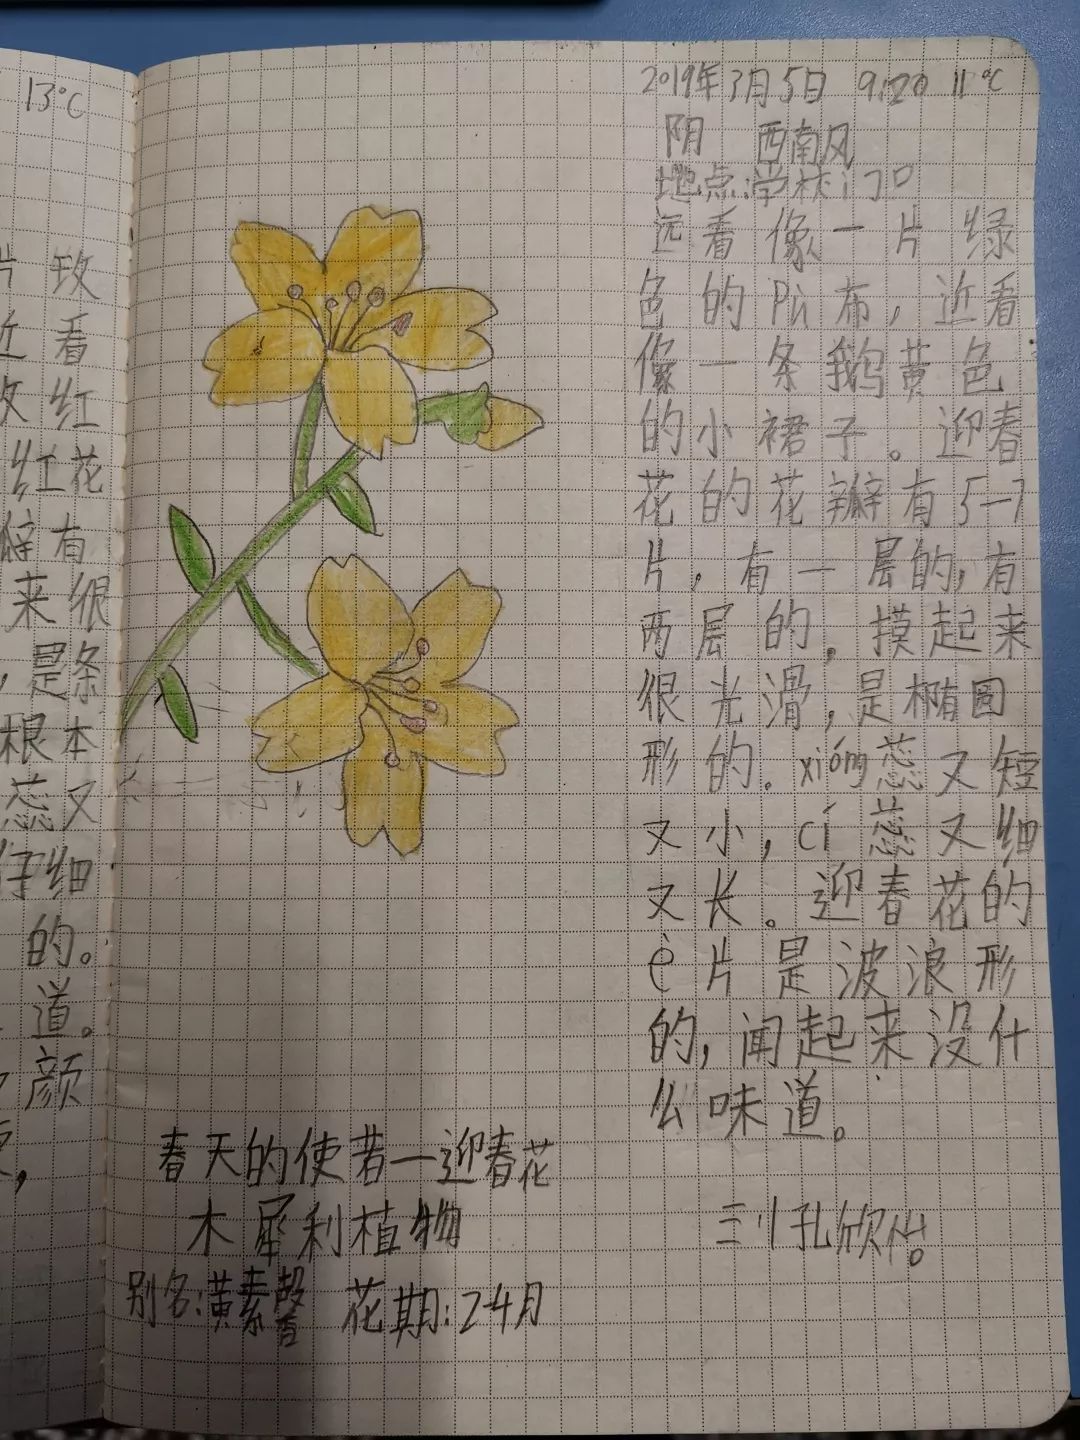 13℃
片 玫
近 看
玫 红
红花
瓣有
来很
，是条
根本
蕊又
仔细
的。
道。
颜
春天的使者—迎春花
木犀利植物
别名:黄素馨 花期:2-4月
2019年3月5日 9:20 11℃
阴 西南风
地点:学校门口
远看像一片绿
色的pù布，近看
像一条鹅黄色
的小裙子。迎春
花的花瓣有5-7
片，有一层的，有
两层的，摸起来
很光滑，是椭圆
形的。xióng蕊又短
又小，cí蕊又细
又长。迎春花的
è片是波浪形
的，闻起来没什
么味道。
孔欣怡